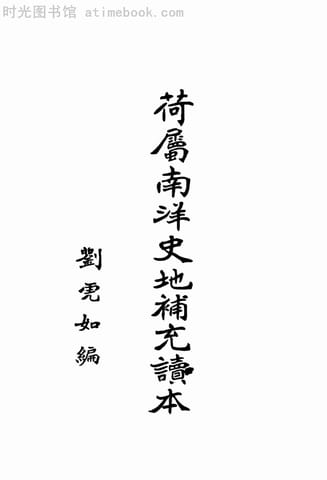 时光图书馆 atimebook.com
荷屬南洋史地補充讀本
劉虎如編